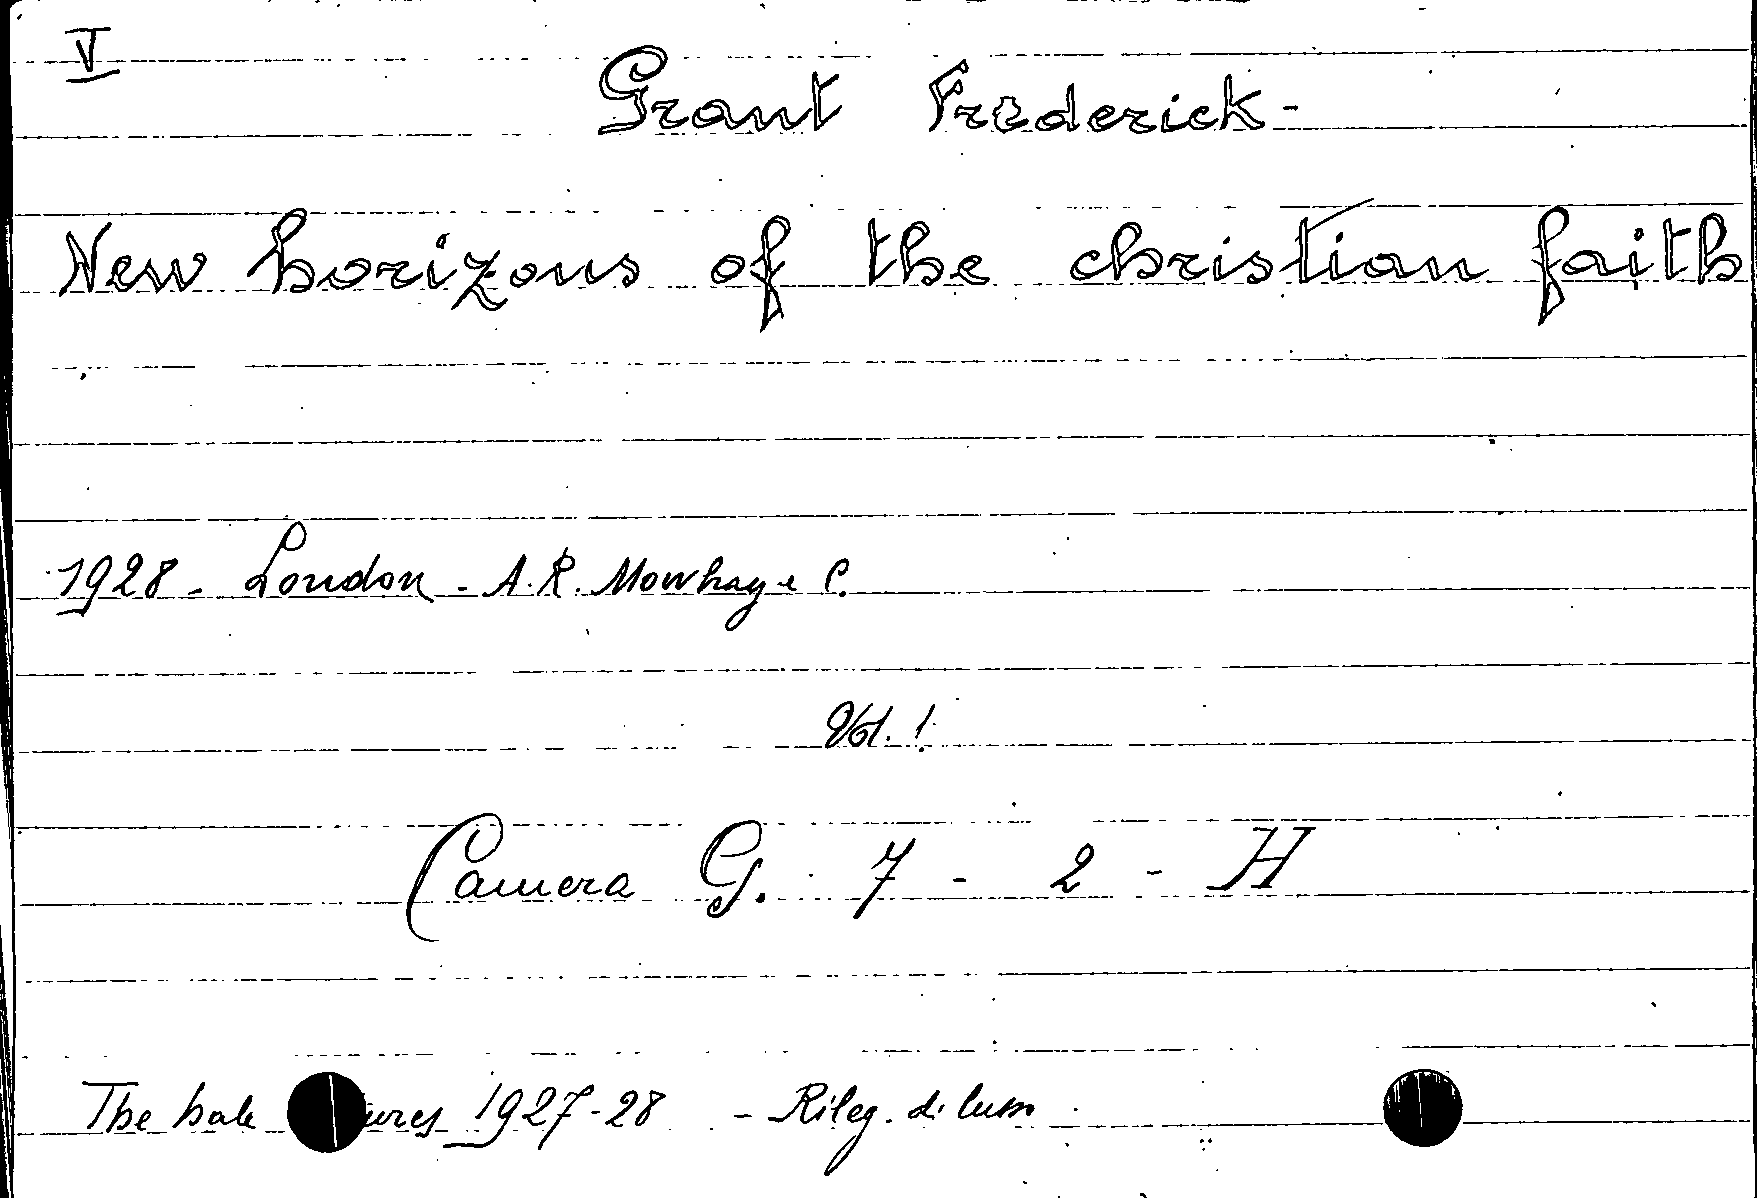 V
Grant Frederick -
New horizons of the christian faith
1928 - London - A. R. Mowhay e C.
Vol. 1
Camera G. 7 - 2 - H
The hale ures 1927-28 - Rileg. di lusso